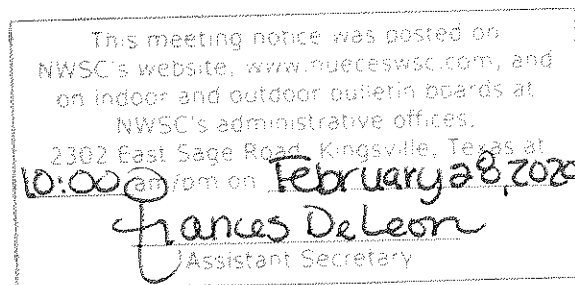 This meeting notice was posted on
NWSC's website, www.nueceswsc.com, and
on indoor and outdoor bulletin boards at
NWSC's administrative offices,
2302 East Sage Road, Kingsville, Texas at
10:00 am/pm on February 28, 2020
Frances DeLeon
Assistant Secretary